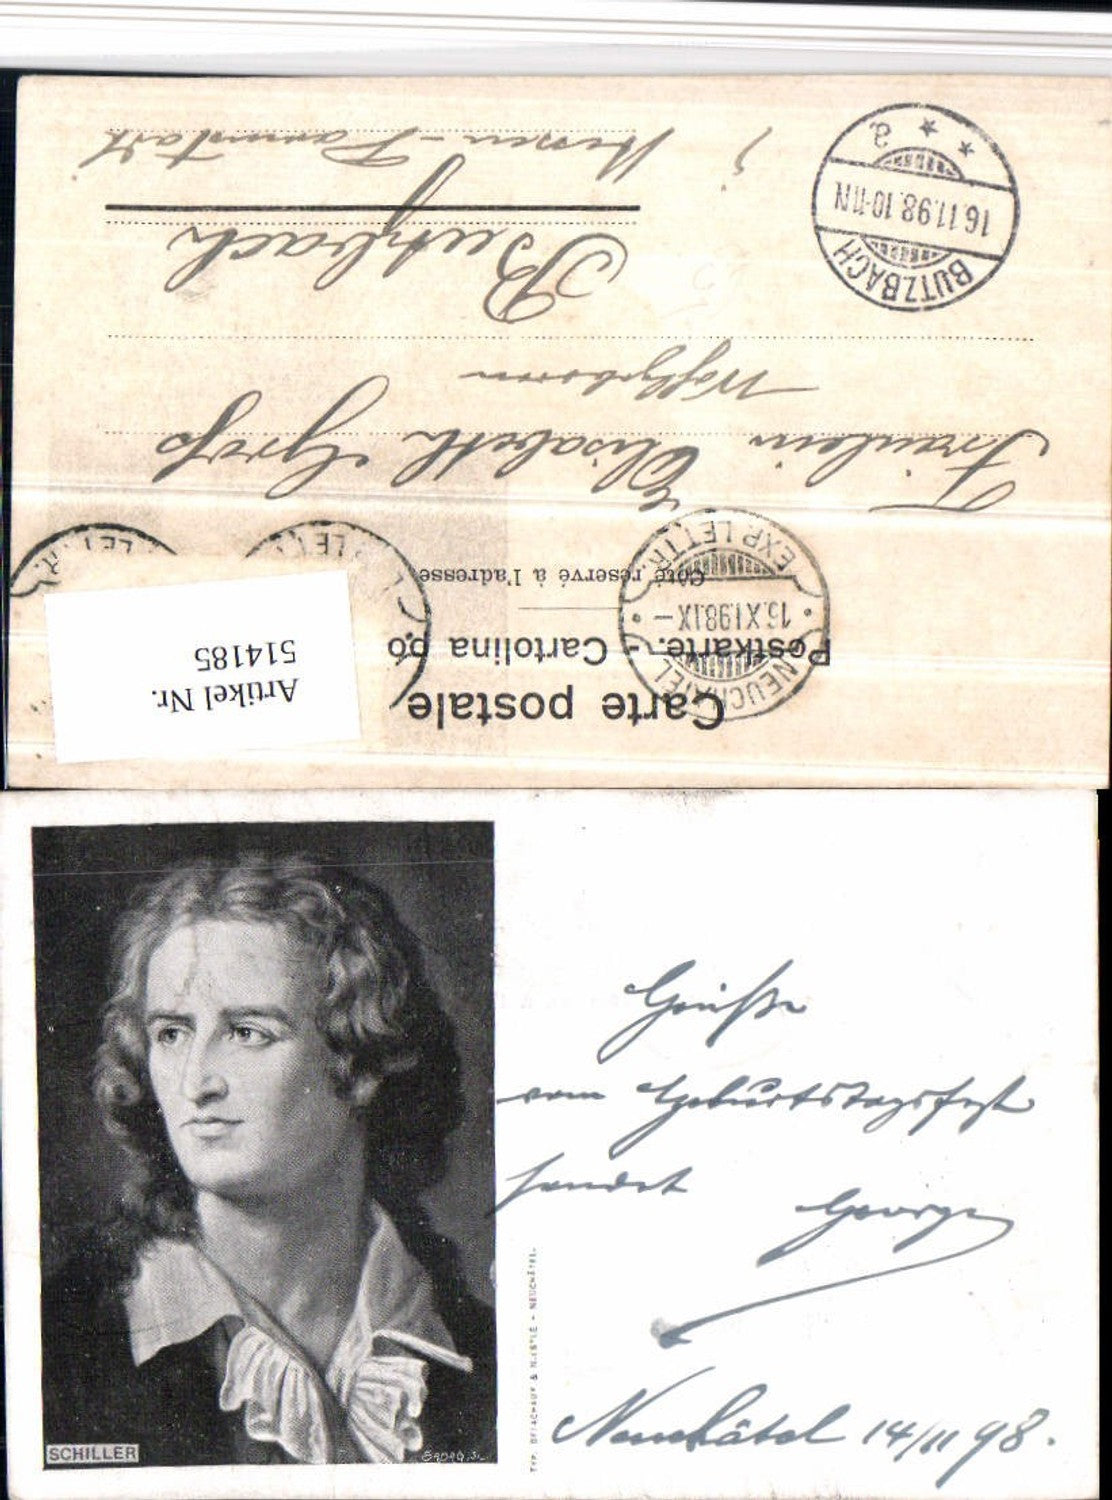 Carte postale
Postkarte. - Cartolina po
Côté réservé à l'adresse
NEUCHATEL
15.XI.98.IX-
EXP. LETTR.
EXP. LETTR.
LETTR.
Artikel Nr.
514185
Fräulein Elisabeth Groß
Wohlgeboren
Butzbach
Hessen-Darmstadt
BUTZBACH
16.11.98.10-11N
* * a.
SCHILLER
TYP. DELACHAUX & NIESTLÉ - NEUCHÂTEL.
Grüße
vom Geburtstagsfest
sendet
George
Neuchâtel 14/11 98.